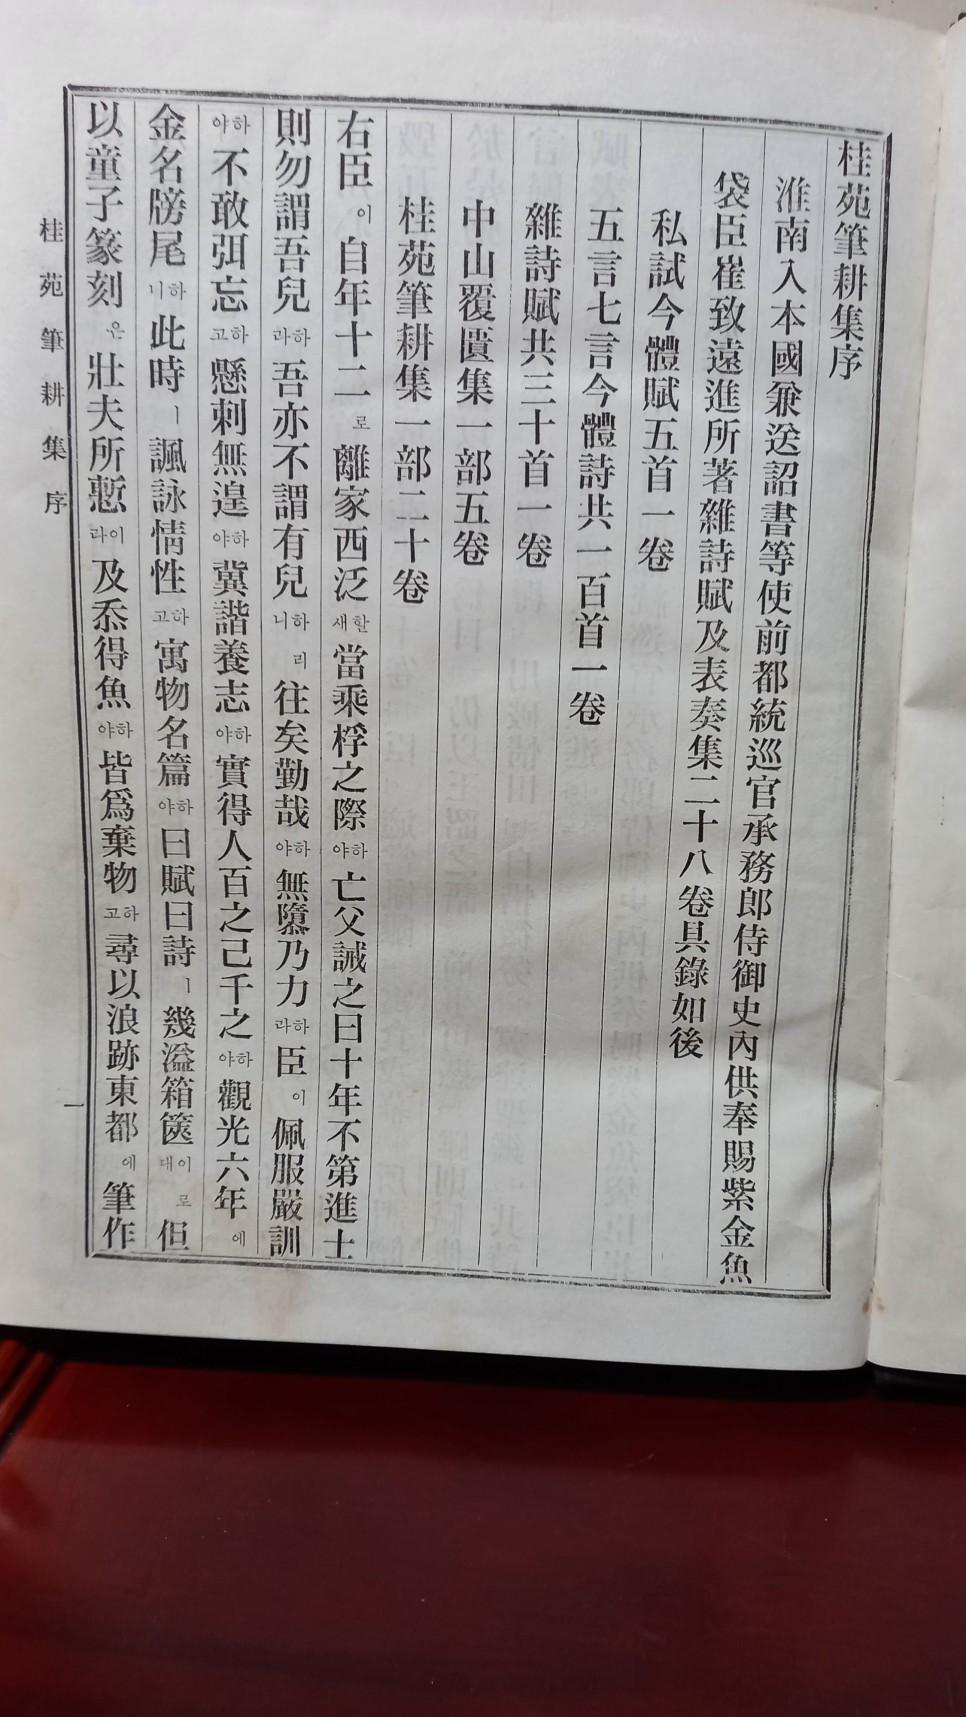 桂苑筆耕集序
淮南入本國兼送詔書等使前都統巡官承務郎侍御史內供奉賜紫金魚
袋臣崔致遠進所著雜詩賦及表奏集二十八卷具錄如後
私試今體賦五首一卷
五言七言今體詩共一百首一卷
雜詩賦共三十首一卷
中山覆匱集一部五卷
桂苑筆耕集一部二十卷
右臣이自年十二로離家西泛할새當乘桴之際하야亡父誡之曰十年不第進士
則勿謂吾兒하라吾亦不謂有兒하리니往矣勤哉하야無隳乃力하라臣이佩服嚴訓
하야不敢弭忘하고懸刺無遑하야冀諧養志하야實得人百之己千之하야觀光六年에
金名牓尾하니此時ㅣ諷詠情性하고寓物名篇하야曰賦曰詩ㅣ幾溢箱篋이로대但
以童子篆刻은壯夫所慙이라及忝得魚하야皆爲棄物하고尋以浪跡東都에筆作
桂苑筆耕集序
一